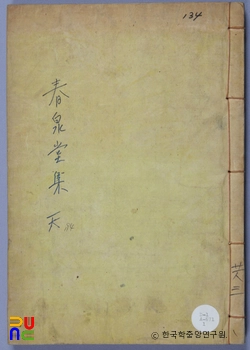 134
春泉堂集 天
共二
© 한국학중앙연구원